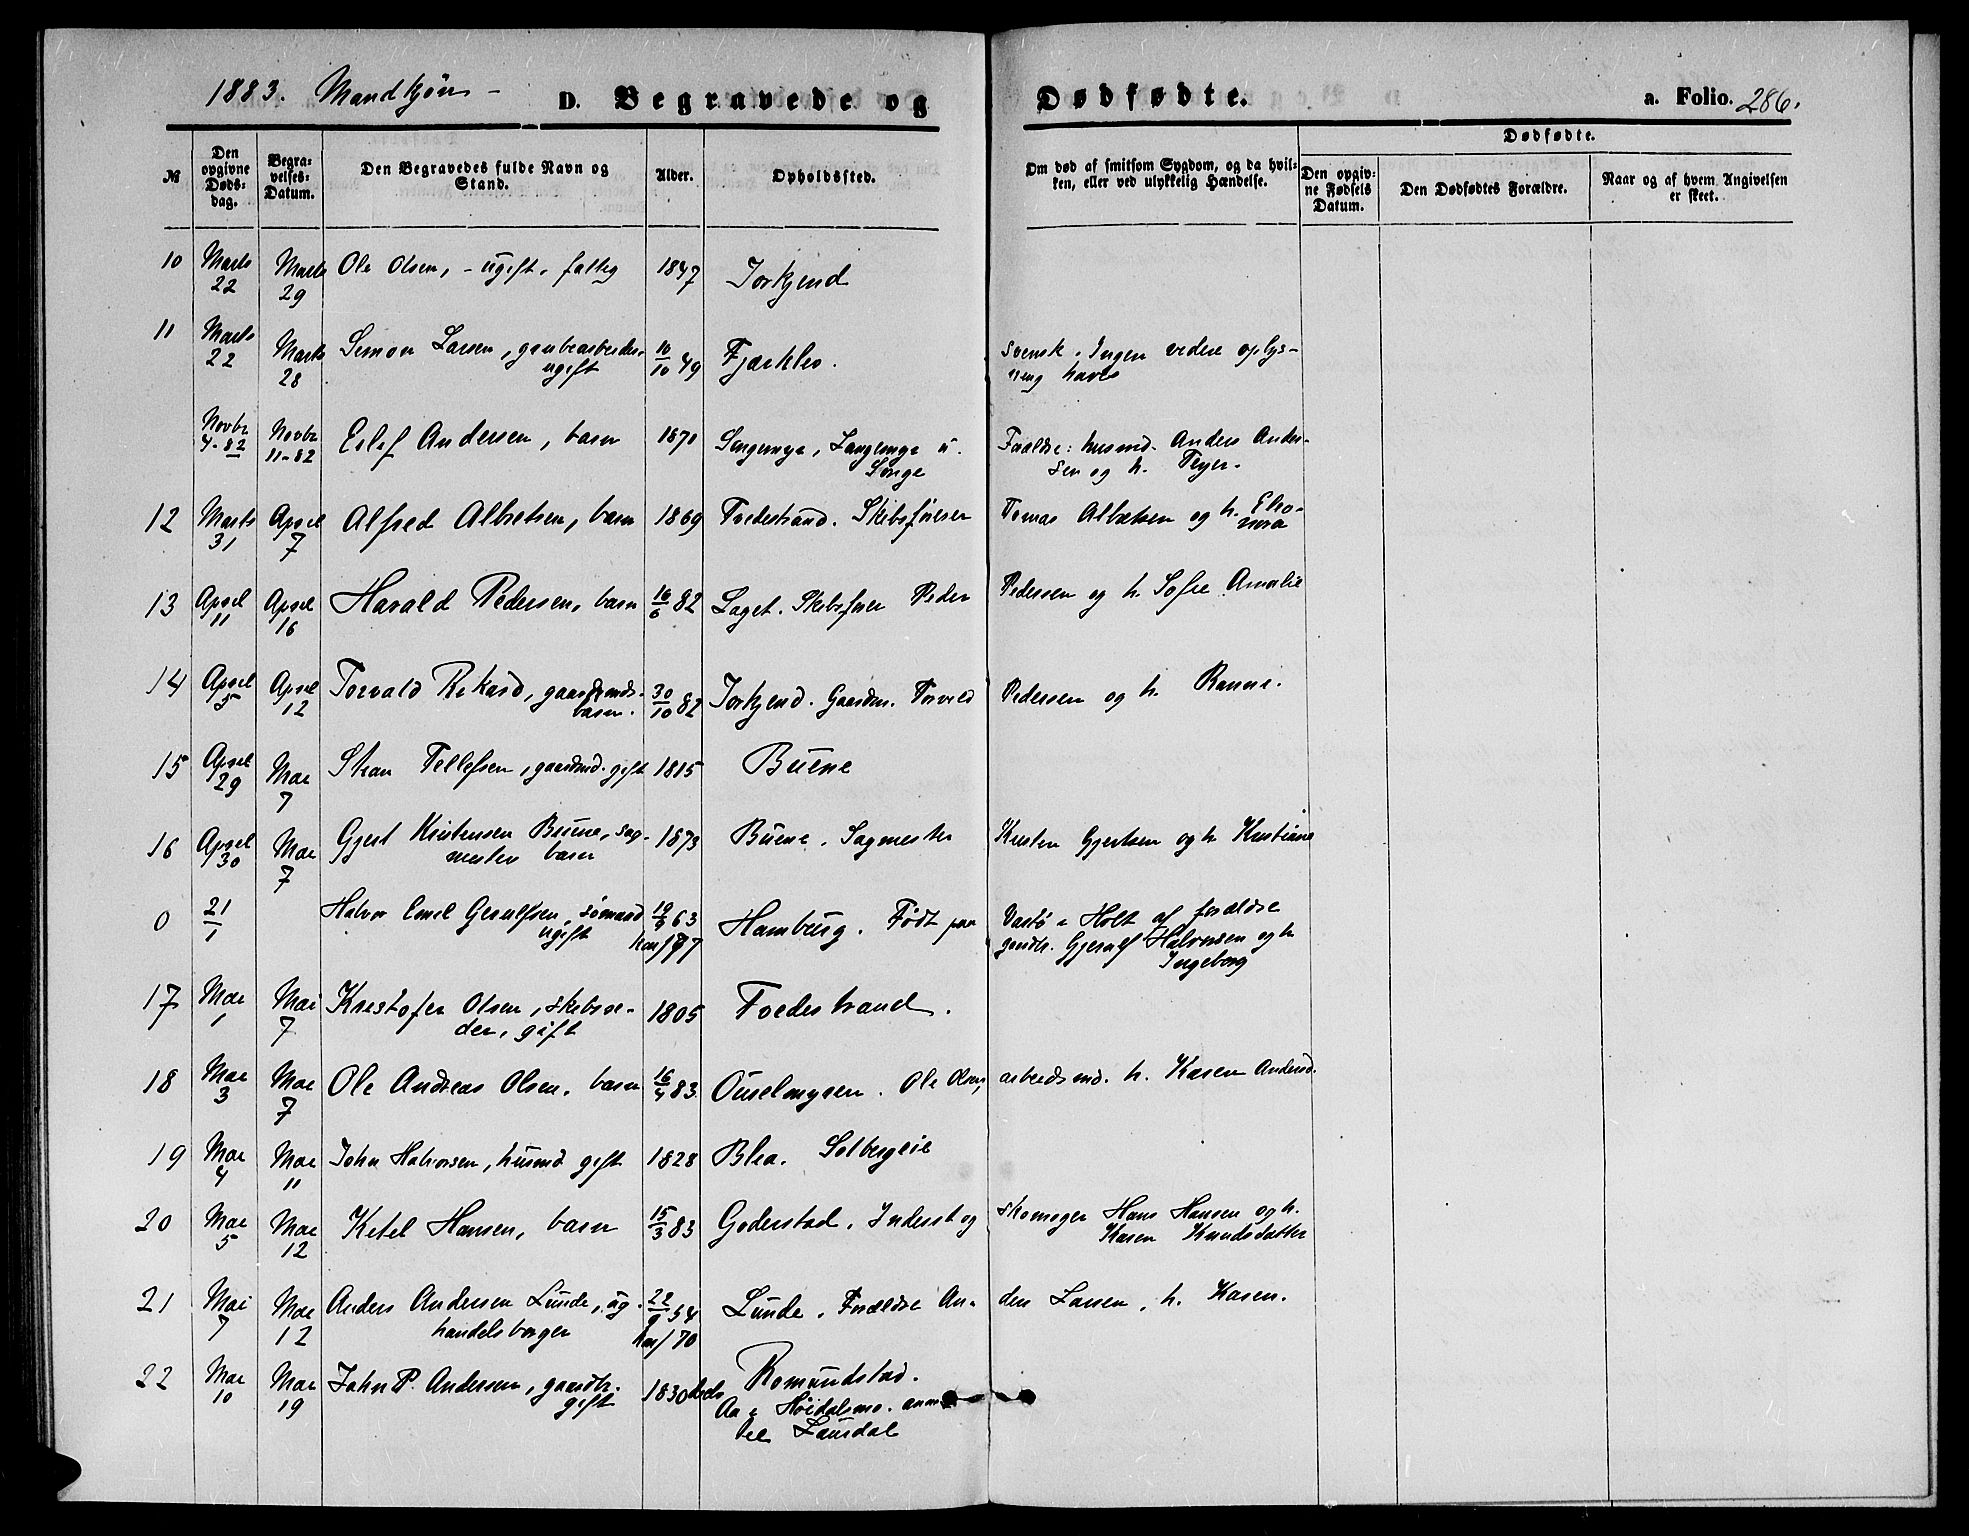 1883. Mandkjøn - D. Begravede og Dødfødte. a. Folio. 286.
№ Den opgivne Døds-dag. Begra-velses-Datum. Den Begravedes fulde Navn og Stand. Alder. Opholdssted. Om død af smitsom Sygdom, og da hvil-ken, eller ved ulykkelig Hændelse. Dødfødte. Den opgiv-ne Fødsels Datum. Den Dødfødtes Forældre. Naar og af hvem Angivelsen er skeet.
10 Marts 22 Marts 29 Ole Olsen, - ugift, fattig 1847 Torkjend
11 Marts 22 Marts 28 Simon Larsen, grubearbeider ugift 10/10 49 Fjærklev. Svensk. Ingen videre oplys-
ning haves
Novbr 4-82 Novbr 11-82 Eilef Andersen, barn 1870 Songemyr, Langemyr u. Forældre: husmd. Anders Ander-
Songe sen og h.
12 Marts 31 April 7 Alfred Albretsen, barn 1869 Tvedestrand. Skibsfører Tomas Albretsen og h. Eleo-
nora
13 April 11 April 16 Harald Pedersen, barn 16/6 82 Laget. Skibsfører Peder Pedersen og h. Sofie Amalie
14 April 5 April 12 Torvald Rikard, gaardmands- 30/10 82 Torkjend. Gaardm. Torvald Pedersen og h.
barn.
15 April 29 Mai 7 Stian Tellefsen, gaardmd. gift 1815 Buene
16 April 30 Mai 7 Gjert Kristensen Buene, sag- 1873 Buene. Sagmester Kristen Gjertsen og h Kristiane
mester barn
0 21/1 Halvor Emil Gerulfsen, sømand 63 Hamburg. Født paa i Holt af forældre
ugift konf 77 gaardbr. Gjerulf Halvorsen og h
Ingeborg
17 Mai 1 Mai 7 Kristofer Olsen, skibsre- 1805 Tvedestrand.
der, gift
18 Mai 3 Mai 7 Ole Andreas Olsen. barn 16/4 83 Ouselmyren. Ole Olsen, arbeidsmd. h. Karen Andersd.
19 Mai 4 Mai 11 John Halvorsen, husmd gift 1828 Blea. Solbergeie
20 Mai 5 Mai 12 Ketel Hansen, barn 15/3 83 Goderstad. Inderst og skomager Hans Hansen og h.
Karen Knudsdatter
21 Mai 7 Mai 12 Anders Andersen Lunde, ug. 22/9 54 Lunde. Forældre An- ders Larsen, h. Karen.
handelsborger konf 70
22 Mai 10 Mai 19 John P. Andersen, gaardbr. 1830 Romundstad.
gift Aa i Høidalsmo. anm
til Laurdal